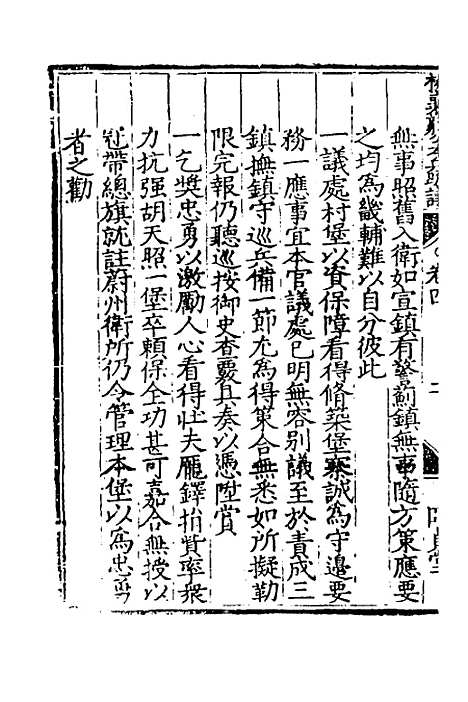 無事照舊入衛如宣鎮有警薊鎮無事隨方策應要
之均為畿輔難以自分彼此
一議處村堡以資保障看得脩築堡寨誠為守邊要
務一應事宜本官議處已明無容別議至於責成三
鎮撫鎮守巡兵備一節尤為得策合無悉如所擬勒
限完報仍聽巡按御史查覈具奏以憑陞賞
一乞獎忠勇以激勵人心看得壯夫龎鐸捐貲率衆
力抗强胡天照一堡卒頼保全功甚可嘉合無授以
冠帶總旗就註蔚州衛所仍令管理本堡以為忠勇
者之勸
卷四
二